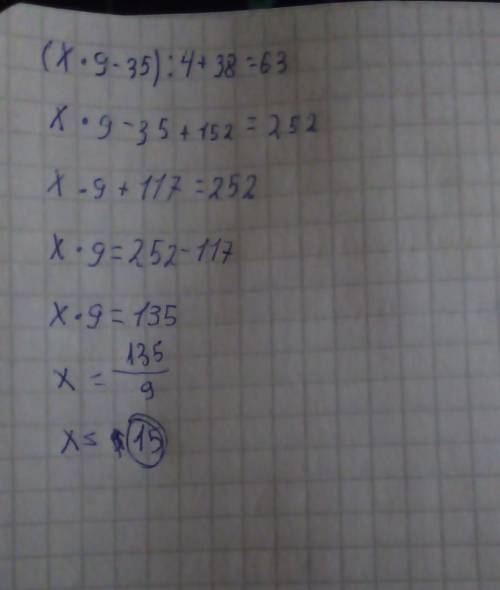 (x · 9 - 35) : 4 + 38 = 63
x · 9 - 35 + 152 = 252
x · 9 + 117 = 252
x · 9 = 252 - 117
x · 9 = 135
x = 135/9
x = 15